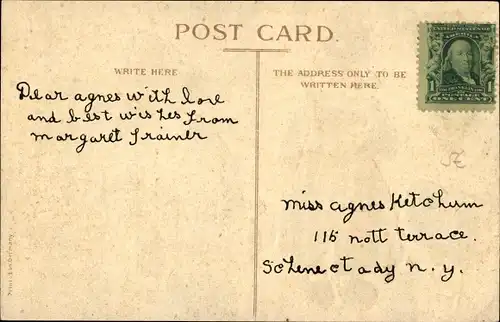 POST CARD.
WRITE HERE
THE ADDRESS ONLY TO BE
WRITTEN HERE.
Dear agnes with love
and best wishes from
margaret Trainer
miss agnes Ketchum
115 nott terrace.
Schenectady n. y.
1
ONE CENT